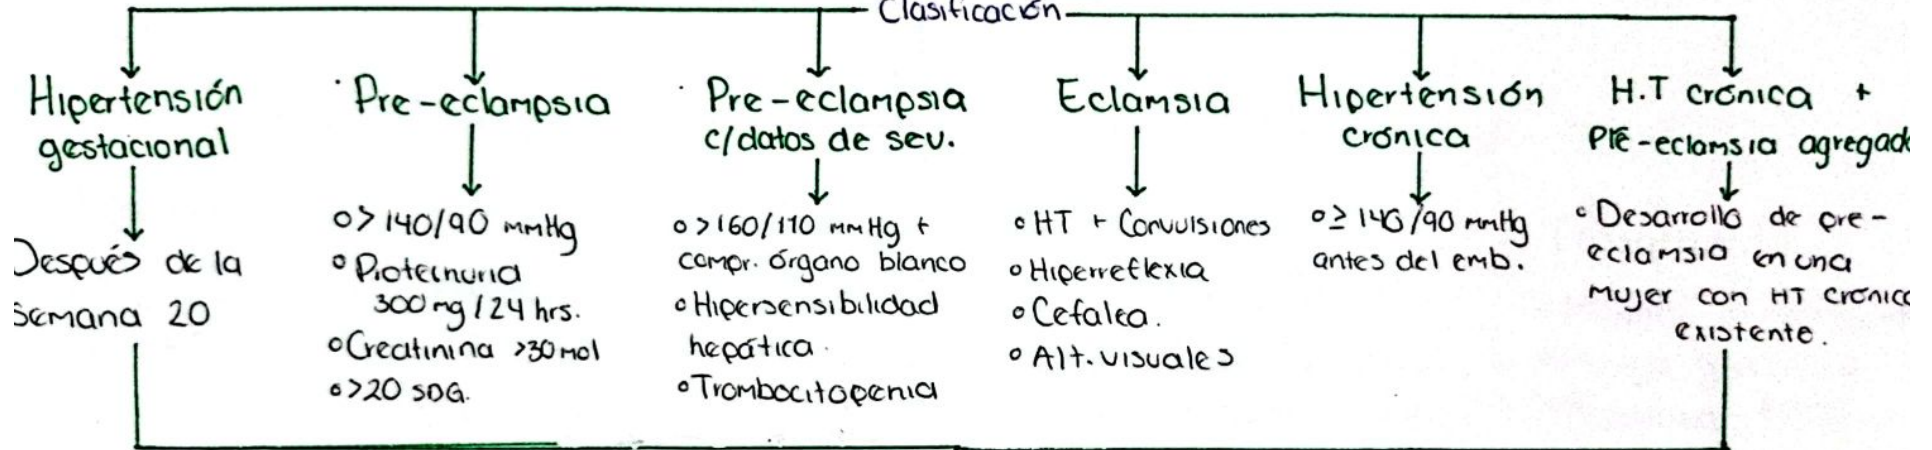 Clasificación
Hipertensión
gestacional
Después de la
semana 20
Pre-eclampsia
>140/90 mmHg
Proteinuria
300 mg/24 hrs.
Creatinina >30 mol
>20 SDG.
Pre-eclampsia
c/datos de sev.
>160/110 mmHg +
compr. órgano blanco
Hipersensibilidad
hepática.
Trombocitopenia
Eclamsia
HT + Convulsiones
Hiperreflexia
Cefalea.
Alt. visuales
Hipertensión
crónica
≥ 140/90 mmHg
antes del emb.
H.T crónica +
Pre-eclamsia agregad
Desarrollo de pre-
eclamsia en una
mujer con HT crónica
existente.